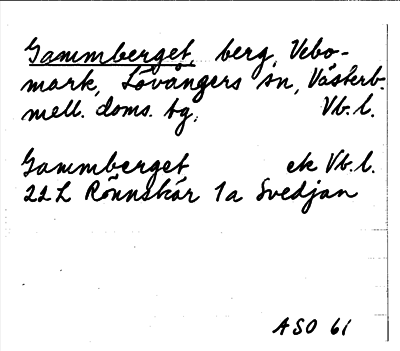 Gammberget, berg, Vebo-
mark, Lövångers sn, Västerb.
mell. doms. tg. Vb. l.
Gammberget ek Vb. l.
22 L Rönnskär 1a Svedjan
ASO 61